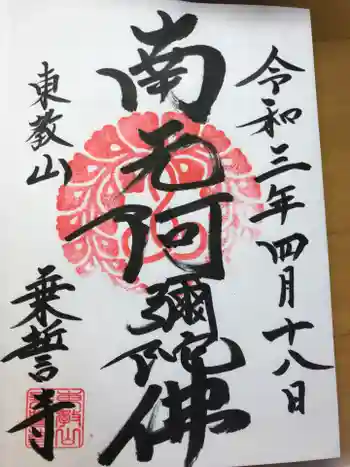 令和三年四月十八日
南无阿彌陀佛
東教山
乗誓寺
東教山